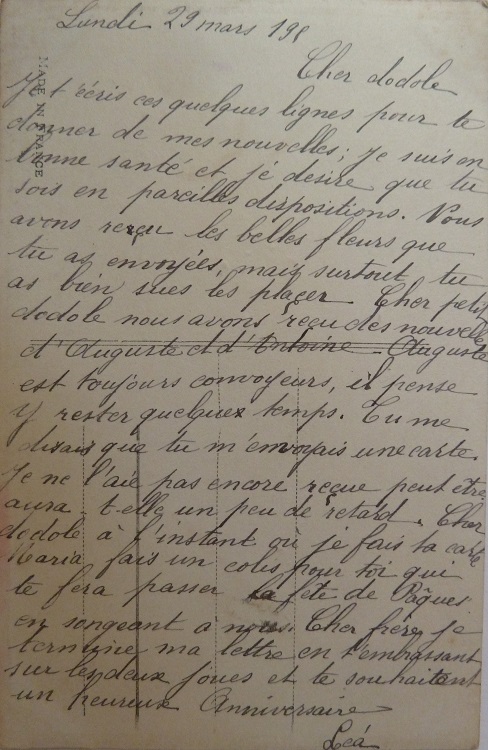 Lundi 29 mars 191
Cher dodole
Je t'écris ces quelques lignes pour te
donner de mes nouvelles; Je suis en
bonne santé et je désire que tu
sois en pareilles dispositions. Nous
avons reçu les belles fleurs que
tu as envoyées, mais surtout tu
as bien sues les plaçer. Cher petit
dodole nous avons reçu des nouvelles
d'Auguste et d'Antoine - Auguste
est toujours convoyeurs, il pense
y rester quelques temps. Tu me
disais que tu m'envoyais une carte.
Je ne l'aie pas encore reçue peut être
aura-t-elle un peu de retard. Cher
dodole à l'instant où je fais ta carte
Maria fais un colis pour toi qui
te fera passer la fête de Pâques
en songeant à nous. Cher frère je
termine ma lettre en t'embrassant
sur les deux joues et te souhaitant
un heureux Anniversaire
Léa
MADE IN FRANCE